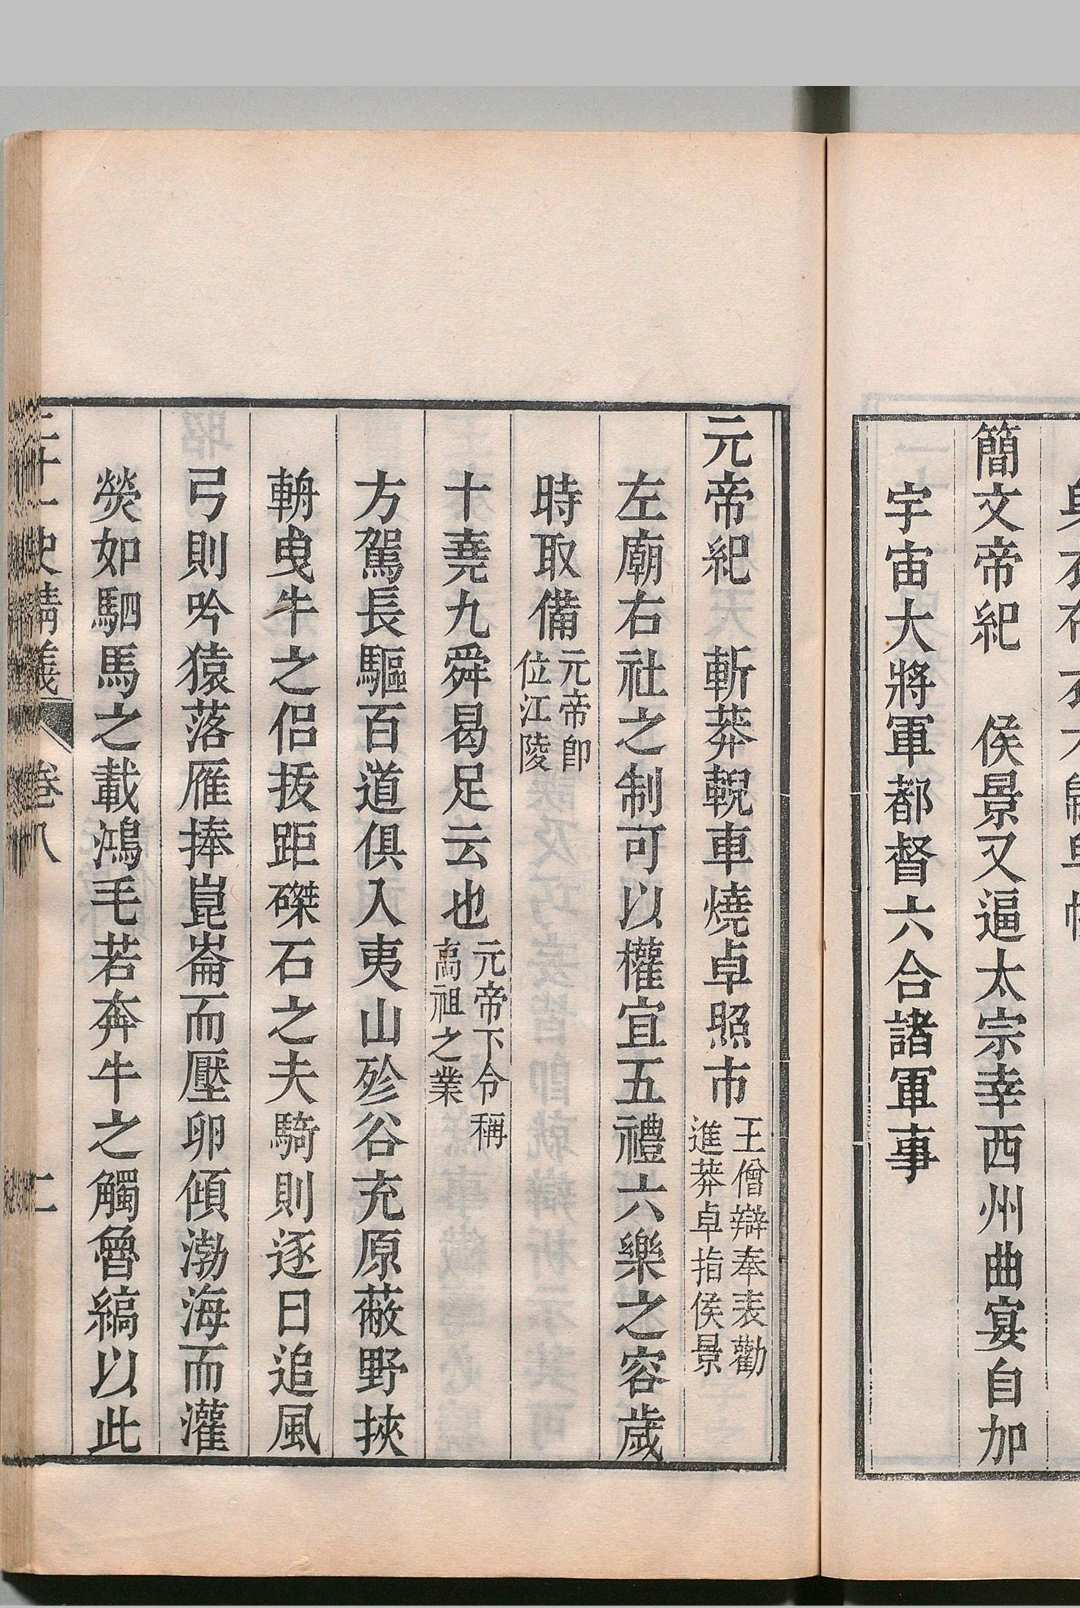 簡文帝紀　侯景又逼太宗幸西州曲宴自加
宇宙大將軍都督六合諸軍事
元帝紀　斬莽輗車燒卓照市王僧辯奉表勸進莽卓指侯景
左廟右社之制可以權宜五禮六樂之容歲
時取備元帝卽位江陵
十堯九舜曷足云也元帝下令稱高祖之業
方駕長驅百道俱入夷山殄谷充原蔽野挾
輈曳牛之侶拔距磔石之夫騎則逐日追風
弓則吟猿落雁捧崑崙而壓卵傾渤海而灌
熒如駟馬之載鴻毛若奔牛之觸魯縞以此
卷八　二